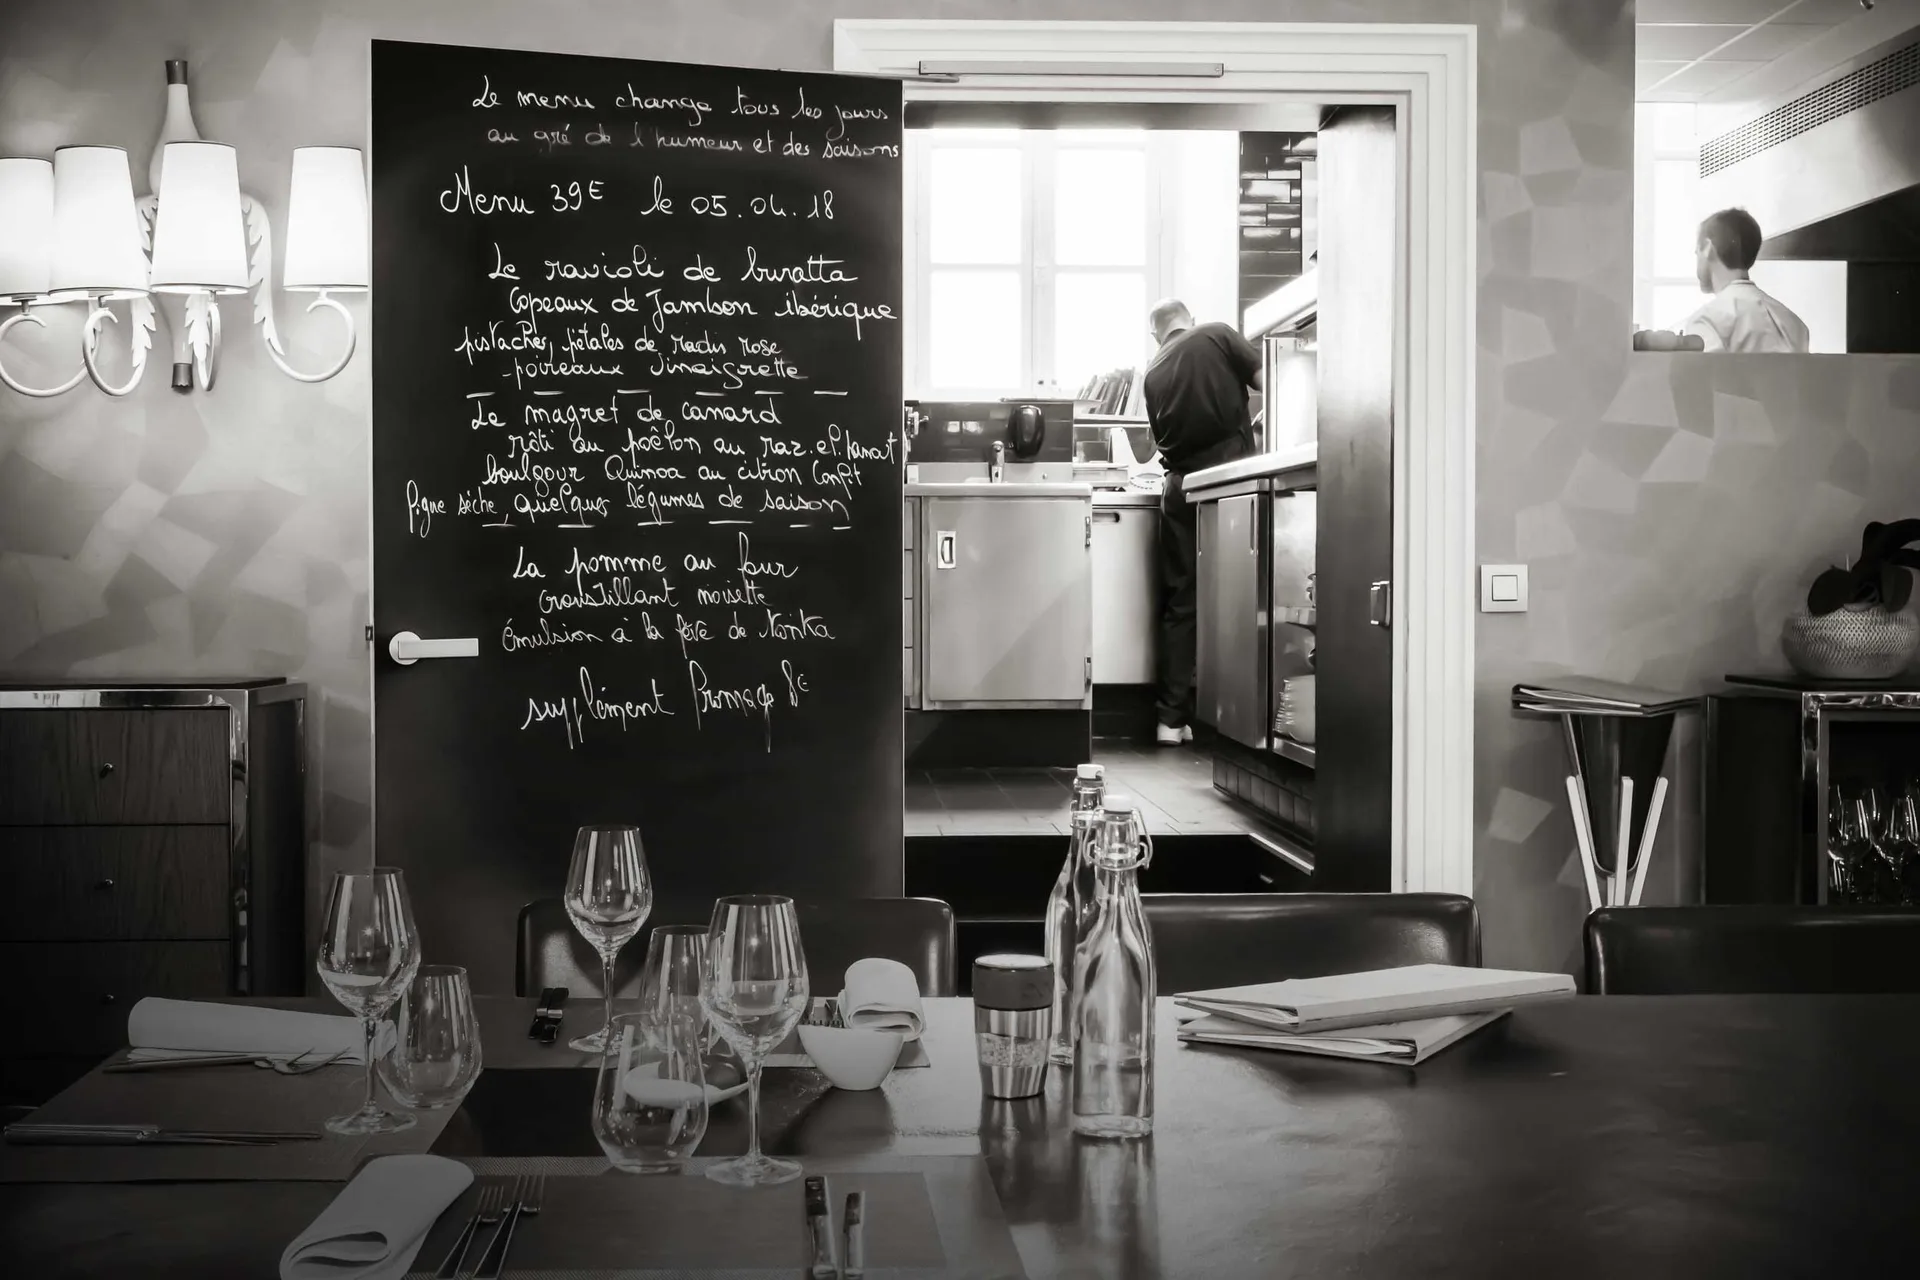 Le menu change tous les jours
au gré de l'humeur et des saisons
Menu 39€ le 05.04.18
Le ravioli de buratta
Copeaux de Jambon ibérique
pistaches, pétales de radis rose
-poireaux vinaigrette
Le magret de canard
rôti au poêlon au raz.el.hanout
boulgour Quinoa au citron Confit
figue sèche, quelques légumes de saison
La pomme au four
croustillant noisette
émulsion à la fève de Tonka
supplément fromage 8€